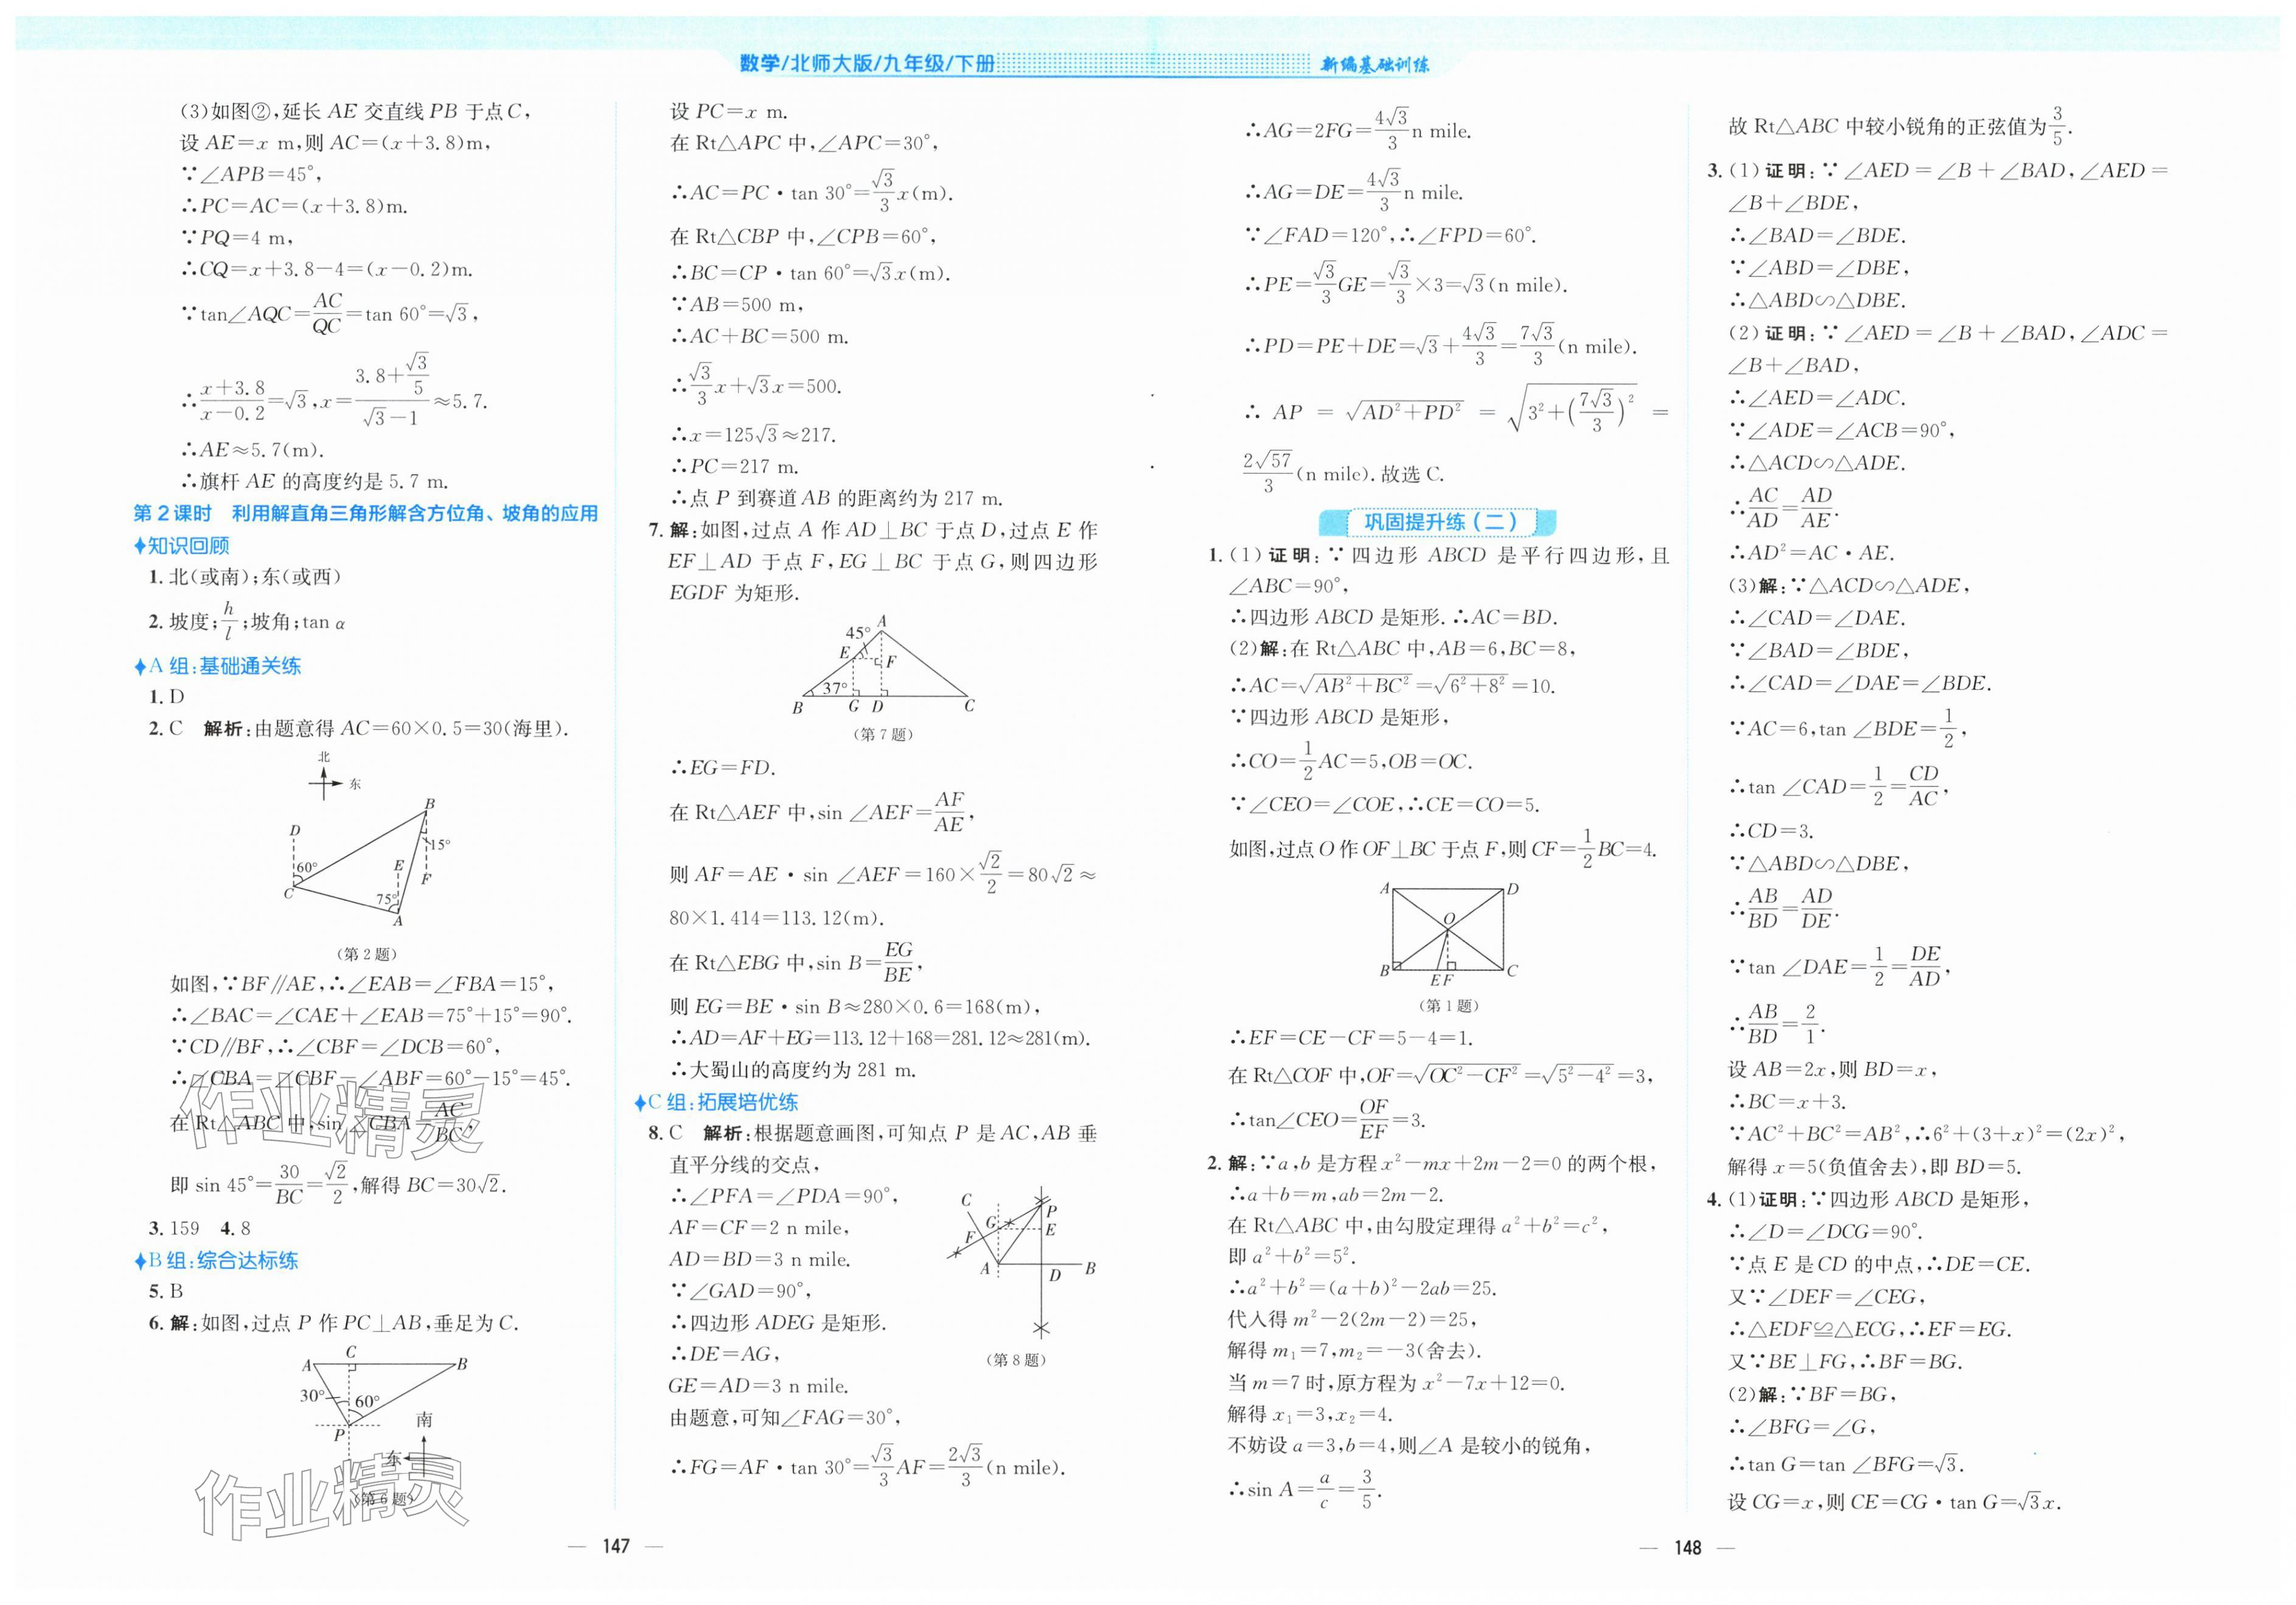 数学/北师大版/九年级/下册
新编基础训练
(3)如图②,延长 AE 交直线 PB 于点 C,
设 AE=x m,则 AC=(x+3.8)m,
∵∠APB=45°,
∴PC=AC=(x+3.8)m.
∵PQ=4 m,
∴CQ=x+3.8-4=(x-0.2)m.
∵tan∠AQC=AC/QC=tan 60°=√3,
∴(x+3.8)/(x-0.2)=√3,x=(3.8+√3/5)/(√3-1)≈5.7.
∴AE≈5.7(m).
∴旗杆 AE 的高度约是 5.7 m.
第2课时 利用解直角三角形解含方位角、坡角的应用
知识回顾
1.北(或南);东(或西)
2.坡度;h/l;坡角;tan α
A 组:基础通关练
1.D
2.C 解析:由题意得 AC=60×0.5=30(海里).
北
东
B
D
15°
60°
E
F
C
75°
A
(第 2 题)
如图,∵BF∥AE,∴∠EAB=∠FBA=15°,
∴∠BAC=∠CAE+∠EAB=75°+15°=90°.
∵CD∥BF,∴∠CBF=∠DCB=60°,
∴∠CBA=∠CBF-∠ABF=60°-15°=45°.
在 Rt△ABC 中,sin∠CBA=AC/BC,
即 sin 45°=30/BC=√2/2,解得 BC=30√2.
3.159 4.8
B 组:综合达标练
5.B
6.解:如图,过点 P 作 PC⊥AB,垂足为 C.
C
A B
30° 60°
P
南
东
(第 6 题)
作业精灵
作业精灵
— 147 —
设 PC=x m.
在 Rt△APC 中,∠APC=30°,
∴AC=PC·tan 30°=√3/3 x(m).
在 Rt△CBP 中,∠CPB=60°,
∴BC=CP·tan 60°=√3x(m).
∵AB=500 m,
∴AC+BC=500 m.
∴√3/3 x+√3x=500.
∴x=125√3≈217.
∴PC=217 m.
∴点 P 到赛道 AB 的距离约为 217 m.
7.解:如图,过点 A 作 AD⊥BC 于点 D,过点 E 作
EF⊥AD 于点 F,EG⊥BC 于点 G,则四边形
EGDF 为矩形.
A
45°
E F
37°
B G D C
(第 7 题)
∴EG=FD.
在 Rt△AEF 中,sin ∠AEF=AF/AE,
则 AF=AE·sin ∠AEF=160×√2/2=80√2≈
80×1.414=113.12(m).
在 Rt△EBG 中,sin B=EG/BE,
则 EG=BE·sin B≈280×0.6=168(m),
∴AD=AF+EG=113.12+168=281.12≈281(m).
∴大蜀山的高度约为 281 m.
C 组:拓展培优练
8.C 解析:根据题意画图,可知点 P 是 AC,AB 垂
直平分线的交点,
∴∠PFA=∠PDA=90°,
AF=CF=2 n mile,
AD=BD=3 n mile.
∵∠GAD=90°,
∴四边形 ADEG 是矩形.
∴DE=AG,
GE=AD=3 n mile.
由题意,可知∠FAG=30°,
∴FG=AF·tan 30°=√3/3 AF=2√3/3(n mile).
C
P
G
E
F
A D B
(第 8 题)
∴AG=2FG=4√3/3 n mile.
∴AG=DE=4√3/3 n mile.
∵∠FAD=120°,∴∠FPD=60°.
∴PE=√3/3 GE=√3/3×3=√3(n mile).
∴PD=PE+DE=√3+4√3/3=7√3/3(n mile).
∴ AP = √(AD²+PD²) = √(3²+(7√3/3)²) =
2√57/3(n mile).故选 C.
巩固提升练(二)
1.(1)证明:∵四边形 ABCD 是平行四边形,且
∠ABC=90°,
∴四边形 ABCD 是矩形.∴AC=BD.
(2)解:在 Rt△ABC 中,AB=6,BC=8,
∴AC=√(AB²+BC²)=√(6²+8²)=10.
∵四边形 ABCD 是矩形,
∴CO=1/2 AC=5,OB=OC.
∵∠CEO=∠COE,∴CE=CO=5.
如图,过点 O 作 OF⊥BC 于点 F,则 CF=1/2 BC=4.
A D
O
B E F C
(第 1 题)
∴EF=CE-CF=5-4=1.
在 Rt△COF 中,OF=√(OC²-CF²)=√(5²-4²)=3,
∴tan∠CEO=OF/EF=3.
2.解:∵a,b 是方程 x²-mx+2m-2=0 的两个根,
∴a+b=m,ab=2m-2.
在 Rt△ABC 中,由勾股定理得 a²+b²=c²,
即 a²+b²=5².
∴a²+b²=(a+b)²-2ab=25.
代入得 m²-2(2m-2)=25,
解得 m₁=7,m₂=-3(舍去).
当 m=7 时,原方程为 x²-7x+12=0.
解得 x₁=3,x₂=4.
不妨设 a=3,b=4,则∠A 是较小的锐角,
∴sin A=a/c=3/5.
故 Rt△ABC 中较小锐角的正弦值为3/5.
3.(1)证明:∵∠AED=∠B+∠BAD,∠AED=
∠B+∠BDE,
∴∠BAD=∠BDE.
∵∠ABD=∠DBE,
∴△ABD∽△DBE.
(2)证明:∵∠AED=∠B+∠BAD,∠ADC=
∠B+∠BAD,
∴∠AED=∠ADC.
∵∠ADE=∠ACB=90°,
∴△ACD∽△ADE.
∴AC/AD=AD/AE.
∴AD²=AC·AE.
(3)解:∵△ACD∽△ADE,
∴∠CAD=∠DAE.
∵∠BAD=∠BDE,
∴∠CAD=∠DAE=∠BDE.
∵AC=6,tan ∠BDE=1/2,
∴tan ∠CAD=1/2=CD/AC,
∴CD=3.
∵△ABD∽△DBE,
∴AB/BD=AD/DE.
∵tan ∠DAE=1/2=DE/AD,
∴AB/BD=2/1.
设 AB=2x,则 BD=x,
∴BC=x+3.
∵AC²+BC²=AB²,∴6²+(3+x)²=(2x)²,
解得 x=5(负值舍去),即 BD=5.
4.(1)证明:∵四边形 ABCD 是矩形,
∴∠D=∠DCG=90°.
∵点 E 是 CD 的中点,∴DE=CE.
又∵∠DEF=∠CEG,
∴△EDF≌△ECG,∴EF=EG.
又∵BE⊥FG,∴BF=BG.
(2)解:∵BF=BG,
∴∠BFG=∠G,
∴tan G=tan ∠BFG=√3.
设 CG=x,则 CE=CG·tan G=√3x.
— 148 —